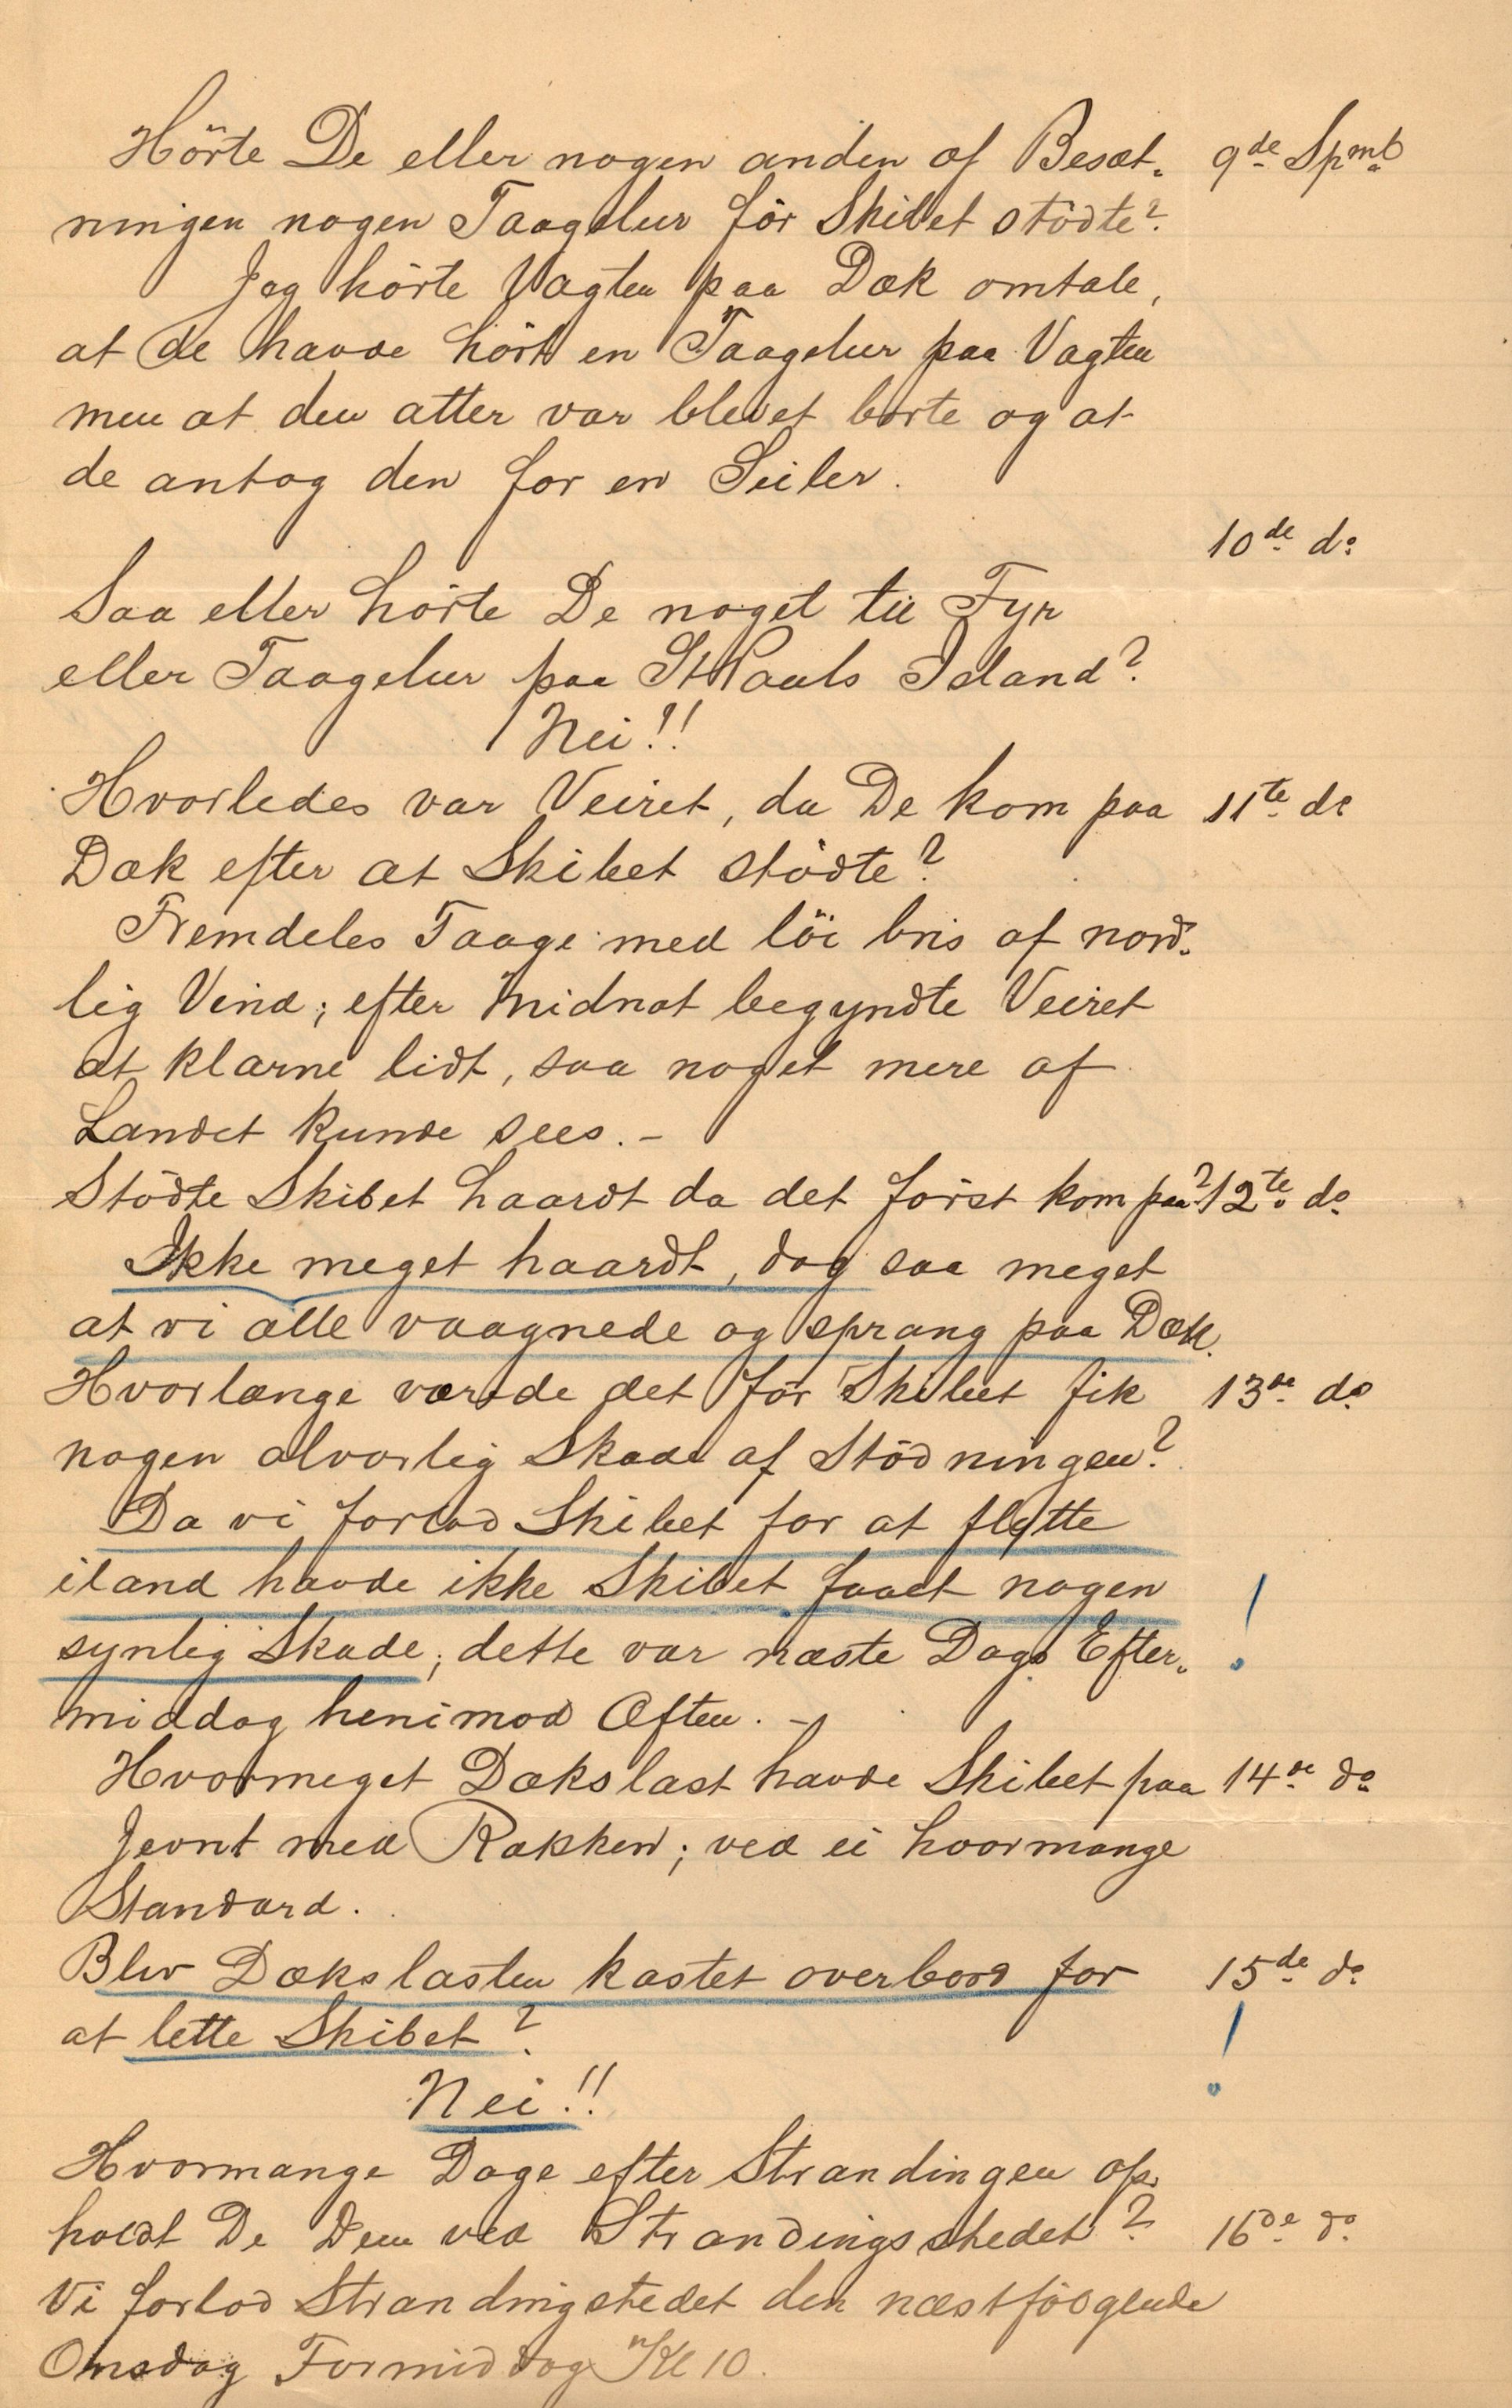 Hörte De eller nogen anden af Besæt- 9de Spmb
ningen nogen Taagelur för Skibet stödte?
Jeg hörte Vagten paa Dæk omtale,
at de havde hört en Taagelur paa Vagten
men at den atter var blevet borte og at
de antog den for en Seiler.
10de do
Saa eller hörte De noget til Fyr
eller Taagelur paa St Pauls Island?
Nei!!
Hvorledes var Veiret, da De kom paa 11te do
Dæk efter at Skibet stödte?
Fremdeles Taage med löi bris af nord-
lig Vind; efter Midnat begyndte Veiret
at klarne lidt, saa noget mere af
Landet kunde sees. -
Stödte Skibet haardt da det först kom paa? 12te do
Ikke meget haardt, dog saa meget
at vi alle vaagnede og sprang paa Dæk.
Hvorlænge værede det för Skibet fik 13de do
nogen alvorlig Skade af Stödningen?
Da vi forlod Skibet for at flytte
iland havde ikke Skibet faaet nogen !
synlig Skade; dette var næste Dags Efter-
middag henimod Aften. -
Hvormeget Dækslast havde Skibet paa 14de do
Jevnt med Rækken; ved ei hvormange
Standard.
Blev Dækslasten kastet overbord for 15de do
at lette Skibet? !
Nei!!
Hvormange Dage efter Strandingen op-
holdt De Dem ved Strandingsstedet? 16de do
Vi forlod Strandingstedet den næstfölgende
Onsdag Formiddag Kl 10.